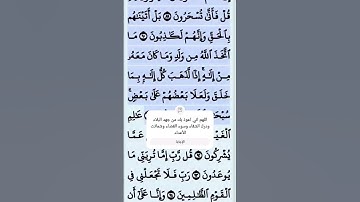 قُلْ فَأَنَّىٰ تُسْحَرُونَ ۝ بَلْ أَتَيْنَٰهُم
بِٱلْحَقِّ وَإِنَّهُمْ لَكَٰذِبُونَ ۝ مَا
ٱتَّخَذَ ٱللَّهُ مِن وَلَدٍ وَمَا كَانَ مَعَهُۥ
مِنْ إِلَٰهٍ إِذًا لَّذَهَبَ كُلُّ إِلَٰهٍۭ بِمَا
خَلَقَ وَلَعَلَا بَعْضُهُمْ عَلَىٰ بَعْضٍ
سُبْحَٰنَ
عَٰلِمِ
اللهم اني اعوذ بك من جهد البلاء
ودرك الشقاء وسوء القضاء وشماتة
الأعداء
ٱلْغَيْبِ
عَمَّا
يُشْرِكُونَ ۝ قُل رَّبِّ إِمَّا تُرِيَنِّي مَا
يُوعَدُونَ ۝ رَبِّ فَلَا تَجْعَلْنِي فِي
ٱلْقَوْمِ ٱلظَّٰلِمِينَ ۝ وَإِنَّا عَلَىٰٓ أَن